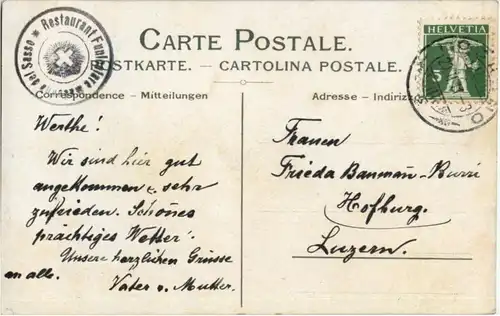 Restaurant Funiculaire
del Sasso
HELVETIA
5
CARTE POSTALE.
POSTKARTE. — CARTOLINA POSTALE.
Correspondence – Mitteilungen
Adresse – Indirizzo
Werthe!
Wir sind hier gut
angekommen & sehr
zufrieden. Schönes
prächtiges Wetter!
Unsere herzlichen Grüsse
an alle.
Vater u. Mutter.
Frauen
Frieda Baumann-Burri
Hofburg.
Luzern.